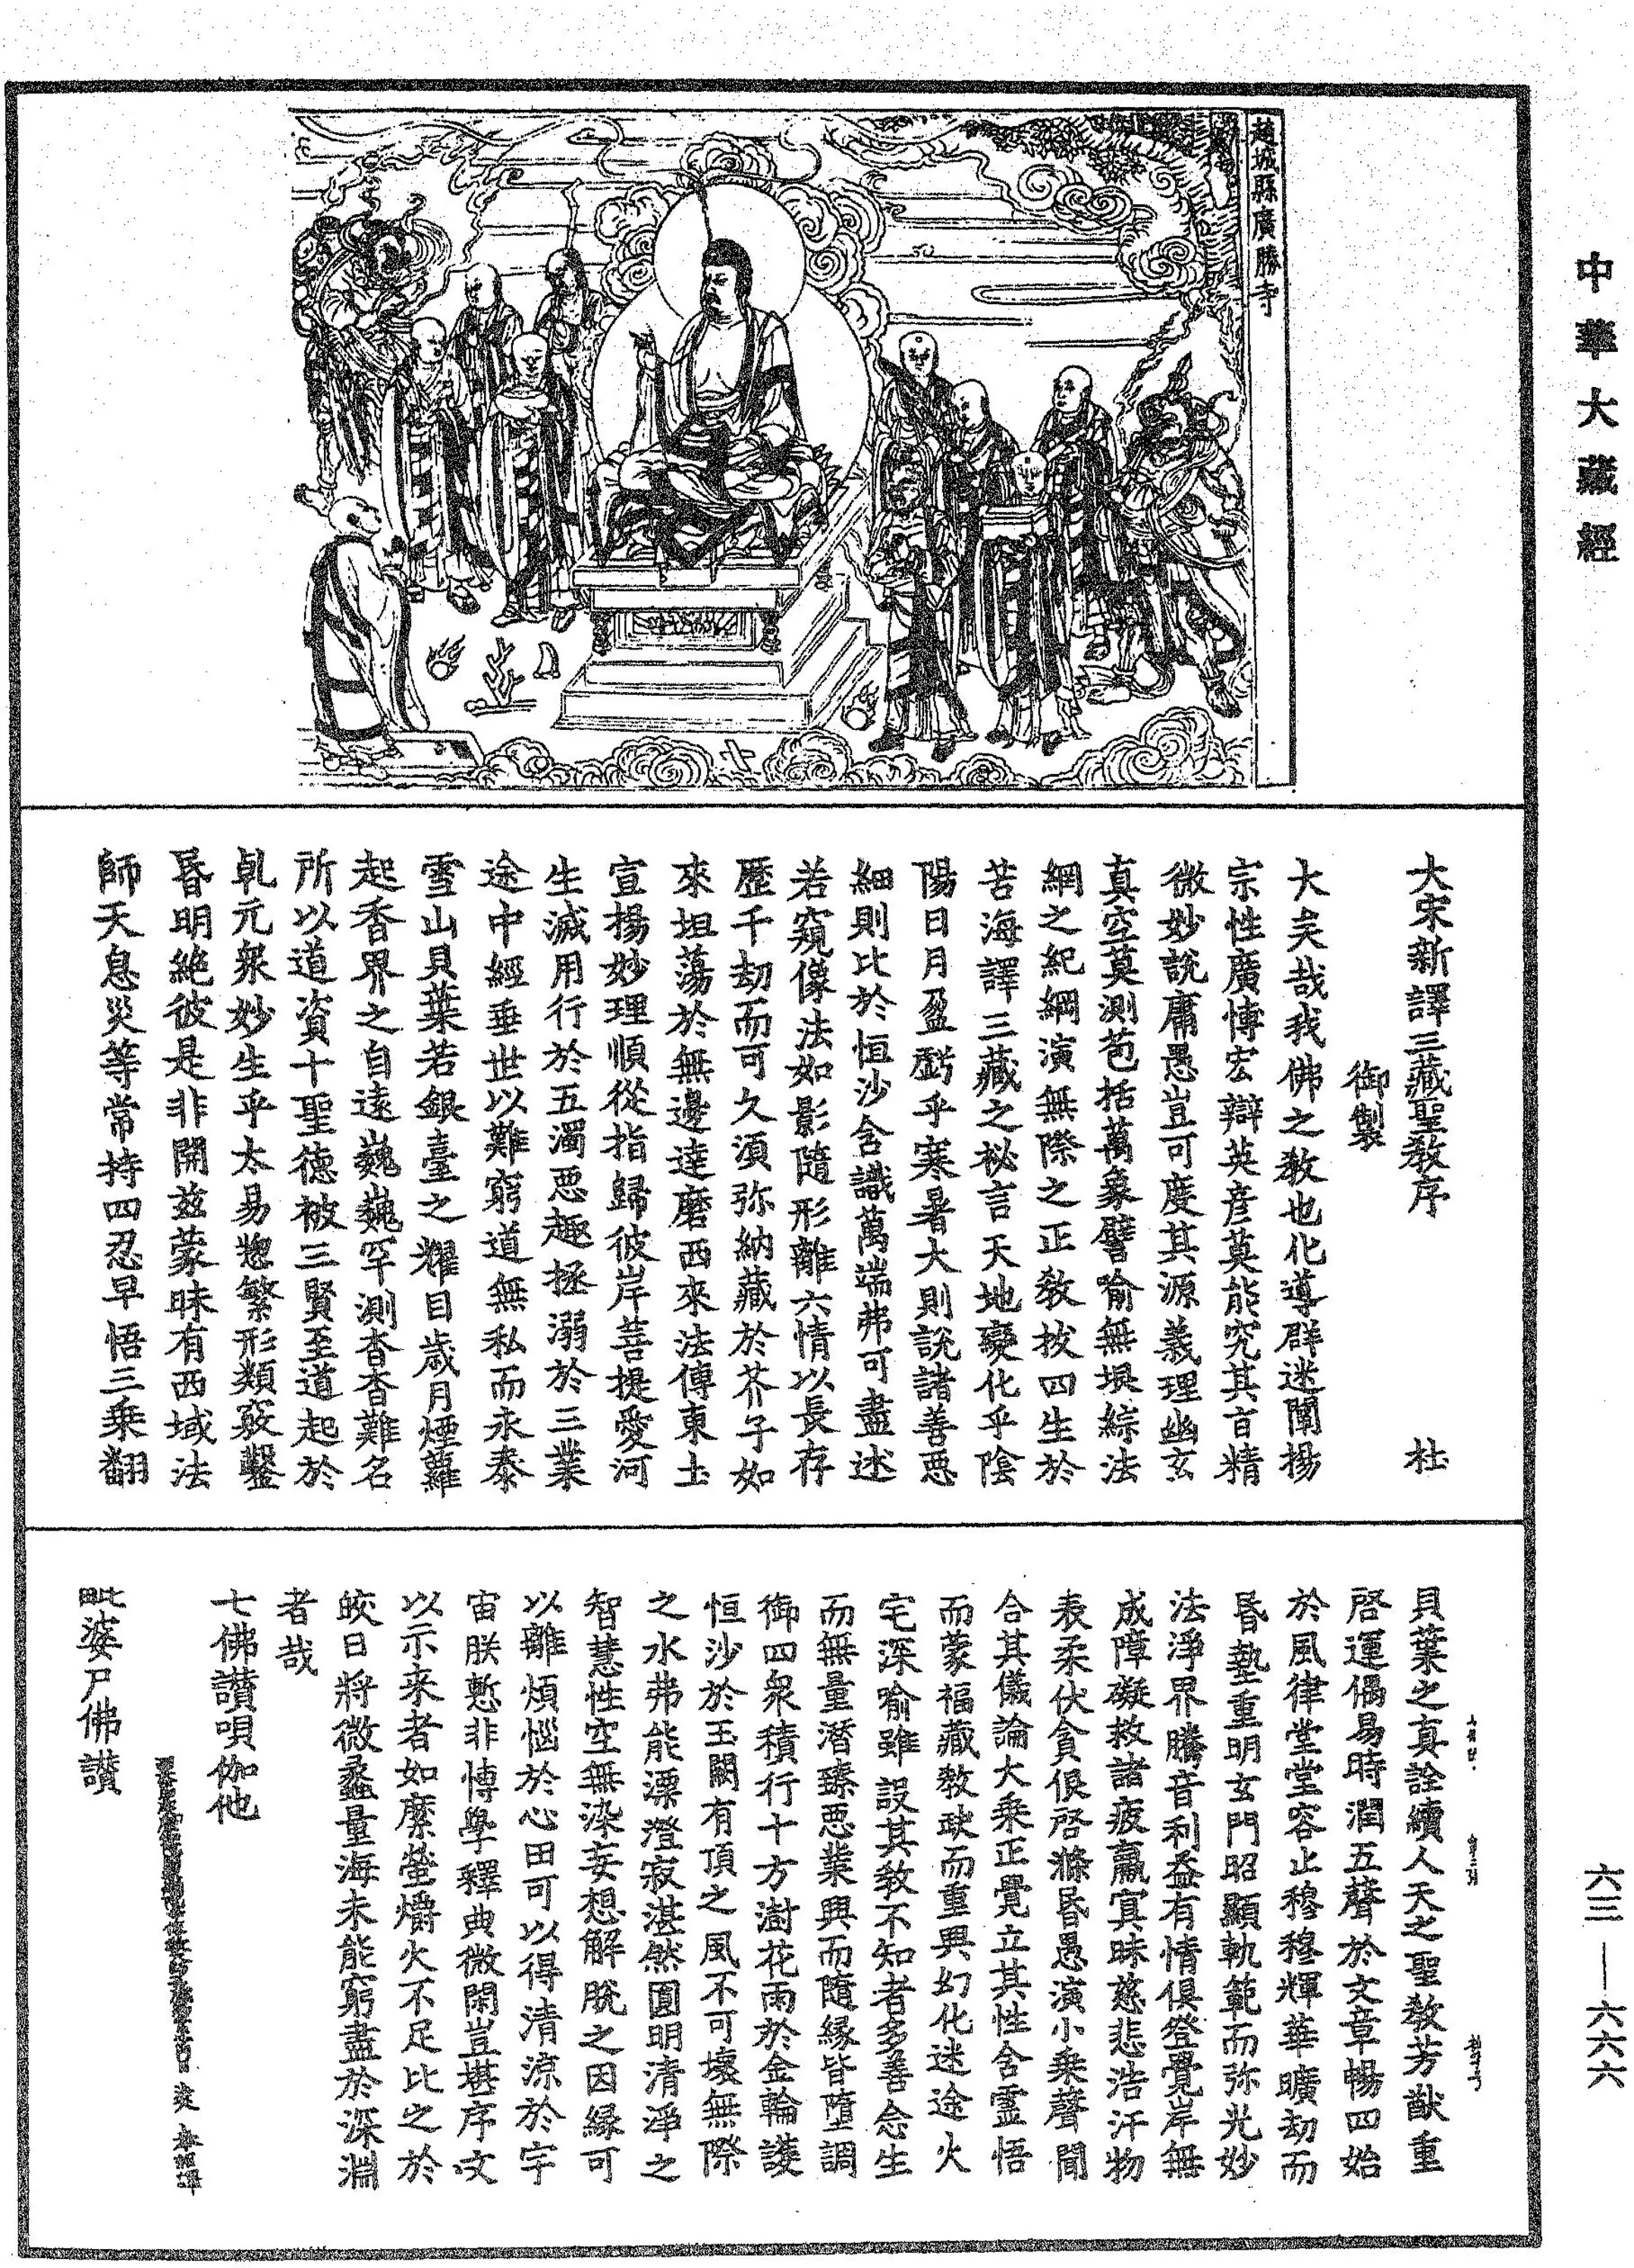 中華大藏經
趙城縣廣勝寺
大宋新譯三藏聖教序 杜
御製
大矣哉我佛之教也化導群迷闡揚
宗性廣愽宏辯英彦莫能究其旨精
微妙說庸愚豈可度其源義理幽玄
真空莫測苞括萬象譬喻無垠綜法
網之紀綱演無際之正教拔四生於
苦海譯三藏之祕言天地變化乎陰
陽日月盈虧乎寒暑大則說諸善惡
細則比於恒沙含識萬端弗可盡述
若窺像法如影隨形離六情以長存
歷千劫而可久湏弥納藏於芥子如
來坦蕩於無邊達磨西來法傳東土
宣揚妙理順從指歸彼岸菩提愛河
生滅用行於五濁惡趣拯溺於三業
途中經垂世以難窮道無私而永泰
雪山貝葉若銀臺之耀目歲月煙蘿
起香界之自遠巍巍罕測杳杳難名
所以道資十聖德被三賢至道起於
乹元衆妙生乎太易惣繁形類竅鑿
昬明絶彼是非開兹蒙昧有西域法
師天息災等常持四忍早悟三乘翻
貝葉之真詮續人天之聖教芳猷重
啓運偶易時潤五聲於文章暢四始
於風律堂堂容止穆穆輝華曠劫而
昬墊重明玄門昭顯軌範而弥光妙
法淨界騰音利益有情俱登覺岸無
成障礙救諸疲羸冥昧慈悲浩汗物
表柔伏貪佷啓滌昬愚演小乘聲聞
合其儀論大乘正覺立其性含靈悟
而蒙福藏教缺而重興幻化迷途火
宅深喻雖設其教不知者多善念生
而無量潛臻惡業興而隨緣皆墮調
御四衆積行十方澍花雨於金輪護
恒沙於玉闕有頂之風不可壞無際
之水弗能漂澄寂湛然圓明清淨之
智慧性空無染妄想解脫之因緣可
以離煩惱於心田可以得清涼於宇
宙朕慙非愽學釋典微閑豈堪序文
以示来者如縻螢爝火不足比之於
皎日將微蠡量海未能窮盡於深淵
者哉
七佛讃唄伽他
毗婆尸佛讃
六三—六六六